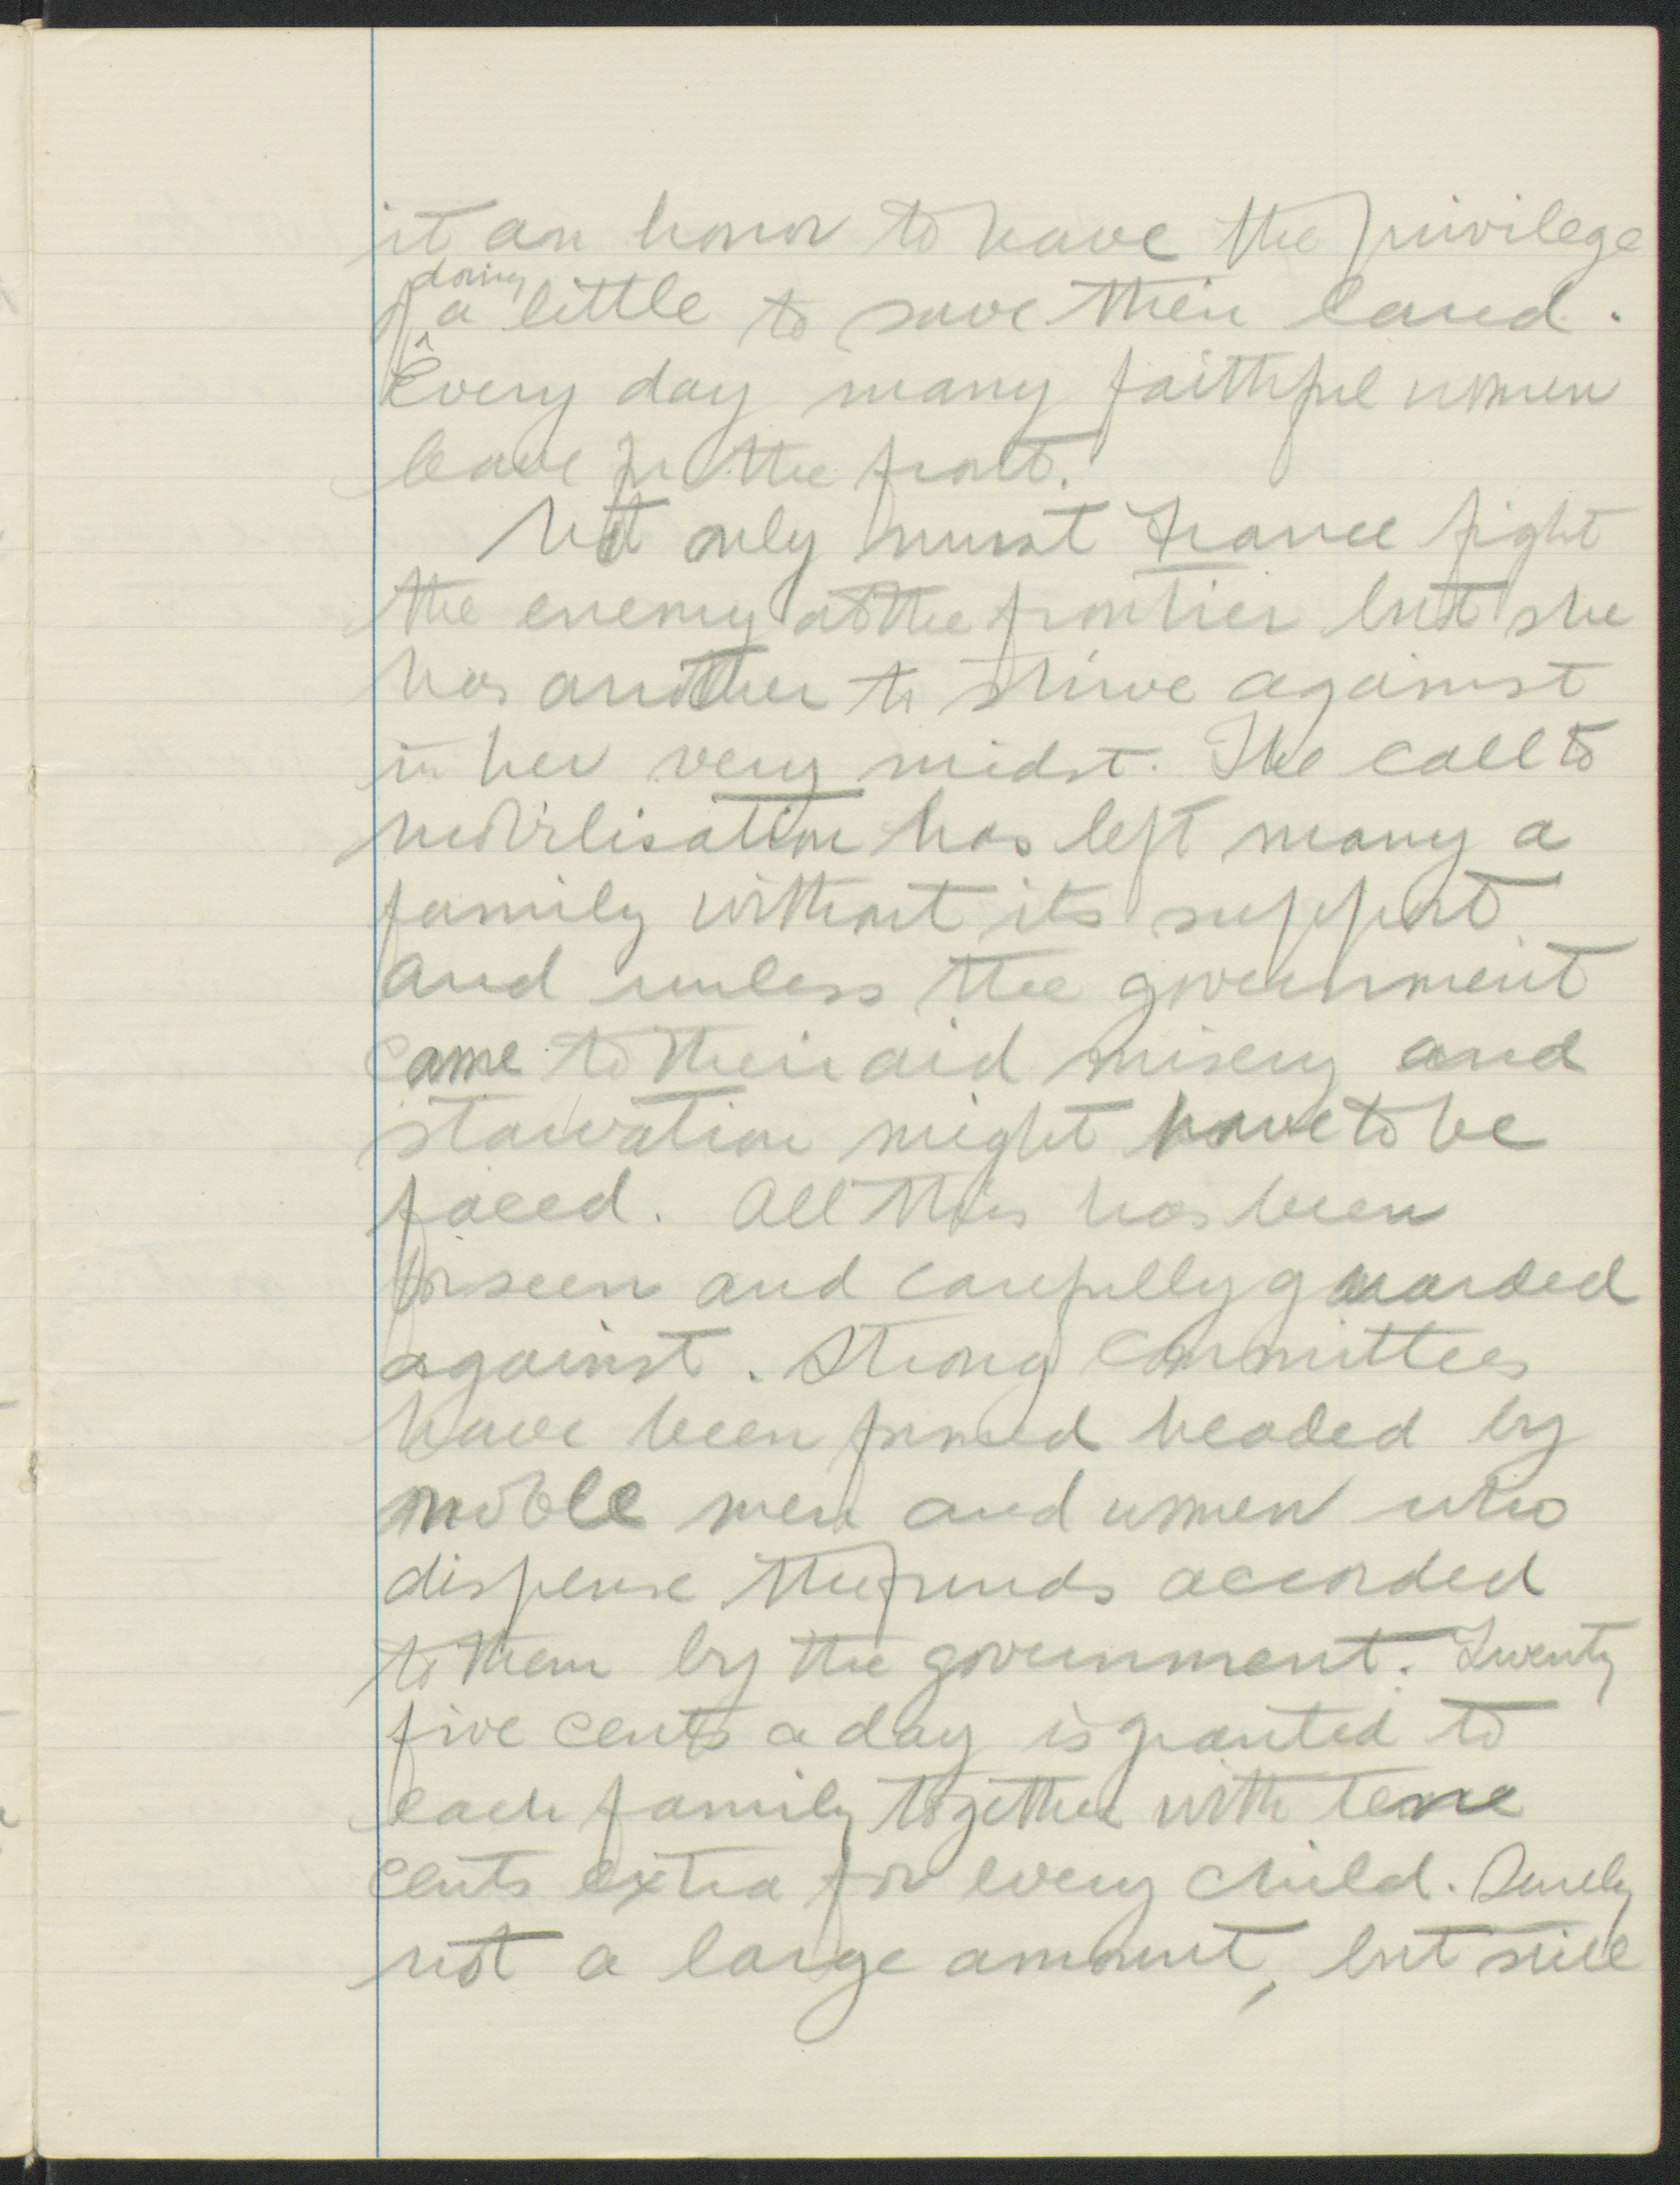 it an honor to have the privilege
of doing a little to save their land.
Every day many faithful women
leave for the front.
Not only must France fight
the enemy at the frontier but she
has another to strive against
in her very midst. The call to
mobilisation has left many a
family without its support
and unless the government
came to their aid misery and
starvation might have to be
faced. All this has been
forseen and carefully guarded
against. Strong committees
have been formed headed by
noble men and women who
dispense the funds accorded
to them by the government. Twenty
five cents a day is granted to
each family together with ten
cents extra for every child. Surely
not a large amount, but still